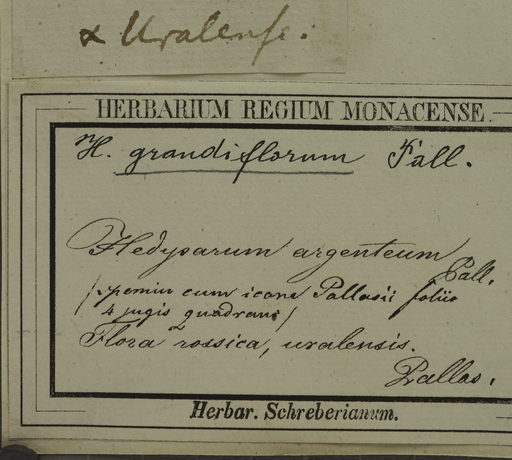 α Uralense.
HERBARIUM REGIUM MONACENSE.
H. grandiflorum Pall.
Hedysarum argenteum
Pall.
cum icone Pallasii foliis
4 jugis quadrans)
Flora rossica, uralensis.
Pallas.
Herbar. Schreberianum.